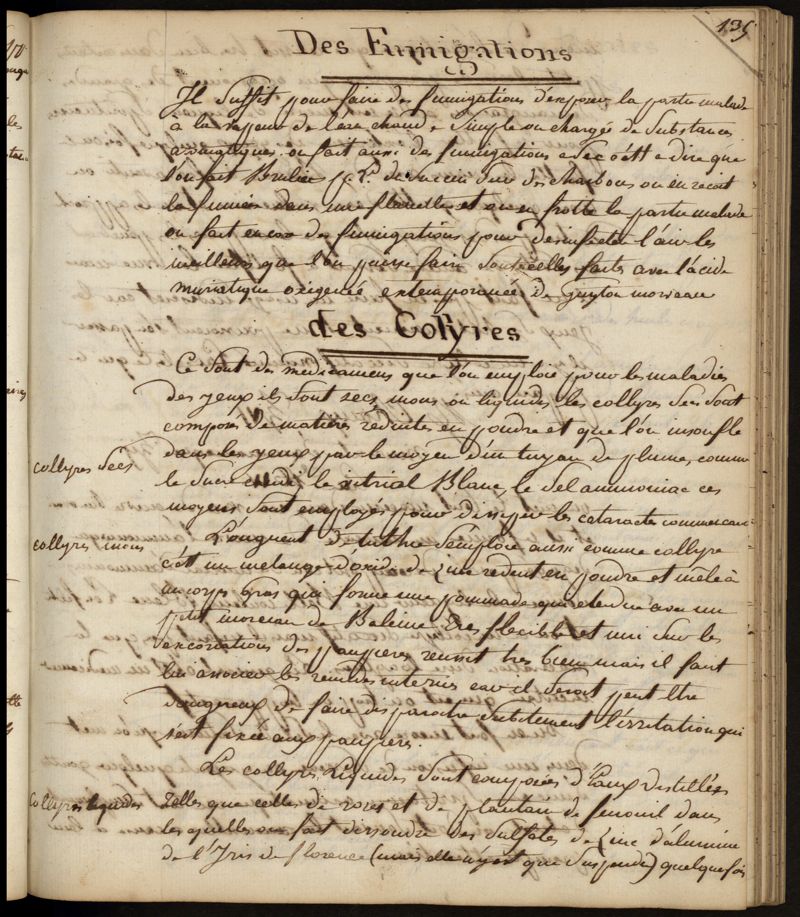 135
Des Fumigations
Il suffit pour faire des fumigations d'exposer la partie malade
à la vapeur de l'eau chaude simple ou chargée de substances
aromatiques. on fait aussi des fumigations sec c'est a dire que
l'on fait Bruler du succin sur des charbons on en recoit
la fumée dans une flanelle et on en frotte la partie malade
on fait encore des fumigations pour desinfecter l'air les
meilleurs que l'on puisse faire sont celles faites avec l'acide
muriatique oxigené extemporanée de Guyton morveau
des Collyres
Ce sont des medicamens que l'on emploie pour les maladies
des yeux ils sont secs mous ou liquides les collyres secs sont
composés de matieres reduites en poudre et que l'on insoufle
collyres secs
dans les yeux par le moyen d'un tuyau de plume, comme
le sucre candi, le vitriol Blanc, le sel ammoniac ces
moyens sont employés pour dissiper les cataractes commencan
collyres mous
L'onguent de tuthie s'emploie aussi comme collyre
c'est un melange d'oxide de Zinc reduit en poudre et mêlé à
un corps gras qui forme une pommade qui etendue avec un
petit morceau de Baleine tres flexible et uni sur les
excoriations des paupieres reussit tres bien mais il faut
lui associer les remedes internes car il seroit peut être
dangereux de faire disparoitre subitement l'irritation qui
s'est fixée aux paupieres.
Les collyres Liquides sont composés d'Eaux distillées
collyres liquides
telles que celles de roses et de plantain de fenouil dans
lesquelles on fait dissoudre des sulfates de Zinc d'alumine
de l'Iris de florence (mais elle n'y est que suspendue) quelquefois